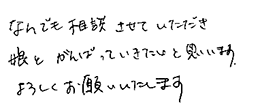 なんでも相談させていただき
娘とがんばっていきたいと思います。
よろしくお願いいたします